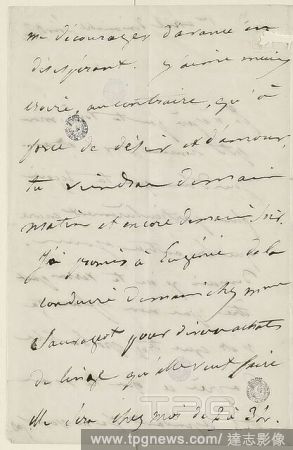 me décourager d'avance en
disespérant. J'aime mieux
croire, au contraire, qu'à
force de désir et d'amour,
tu viendras demain
matin et encore demain soir.
J'ai promis à Eugénie de la
conduire demain chez mme
Sauvageot pour divers achats
de linge qu'elle veut faire
elle sera chez moi de 2 à 3 h.
TPG
www.tpgnews.com / 達志影像